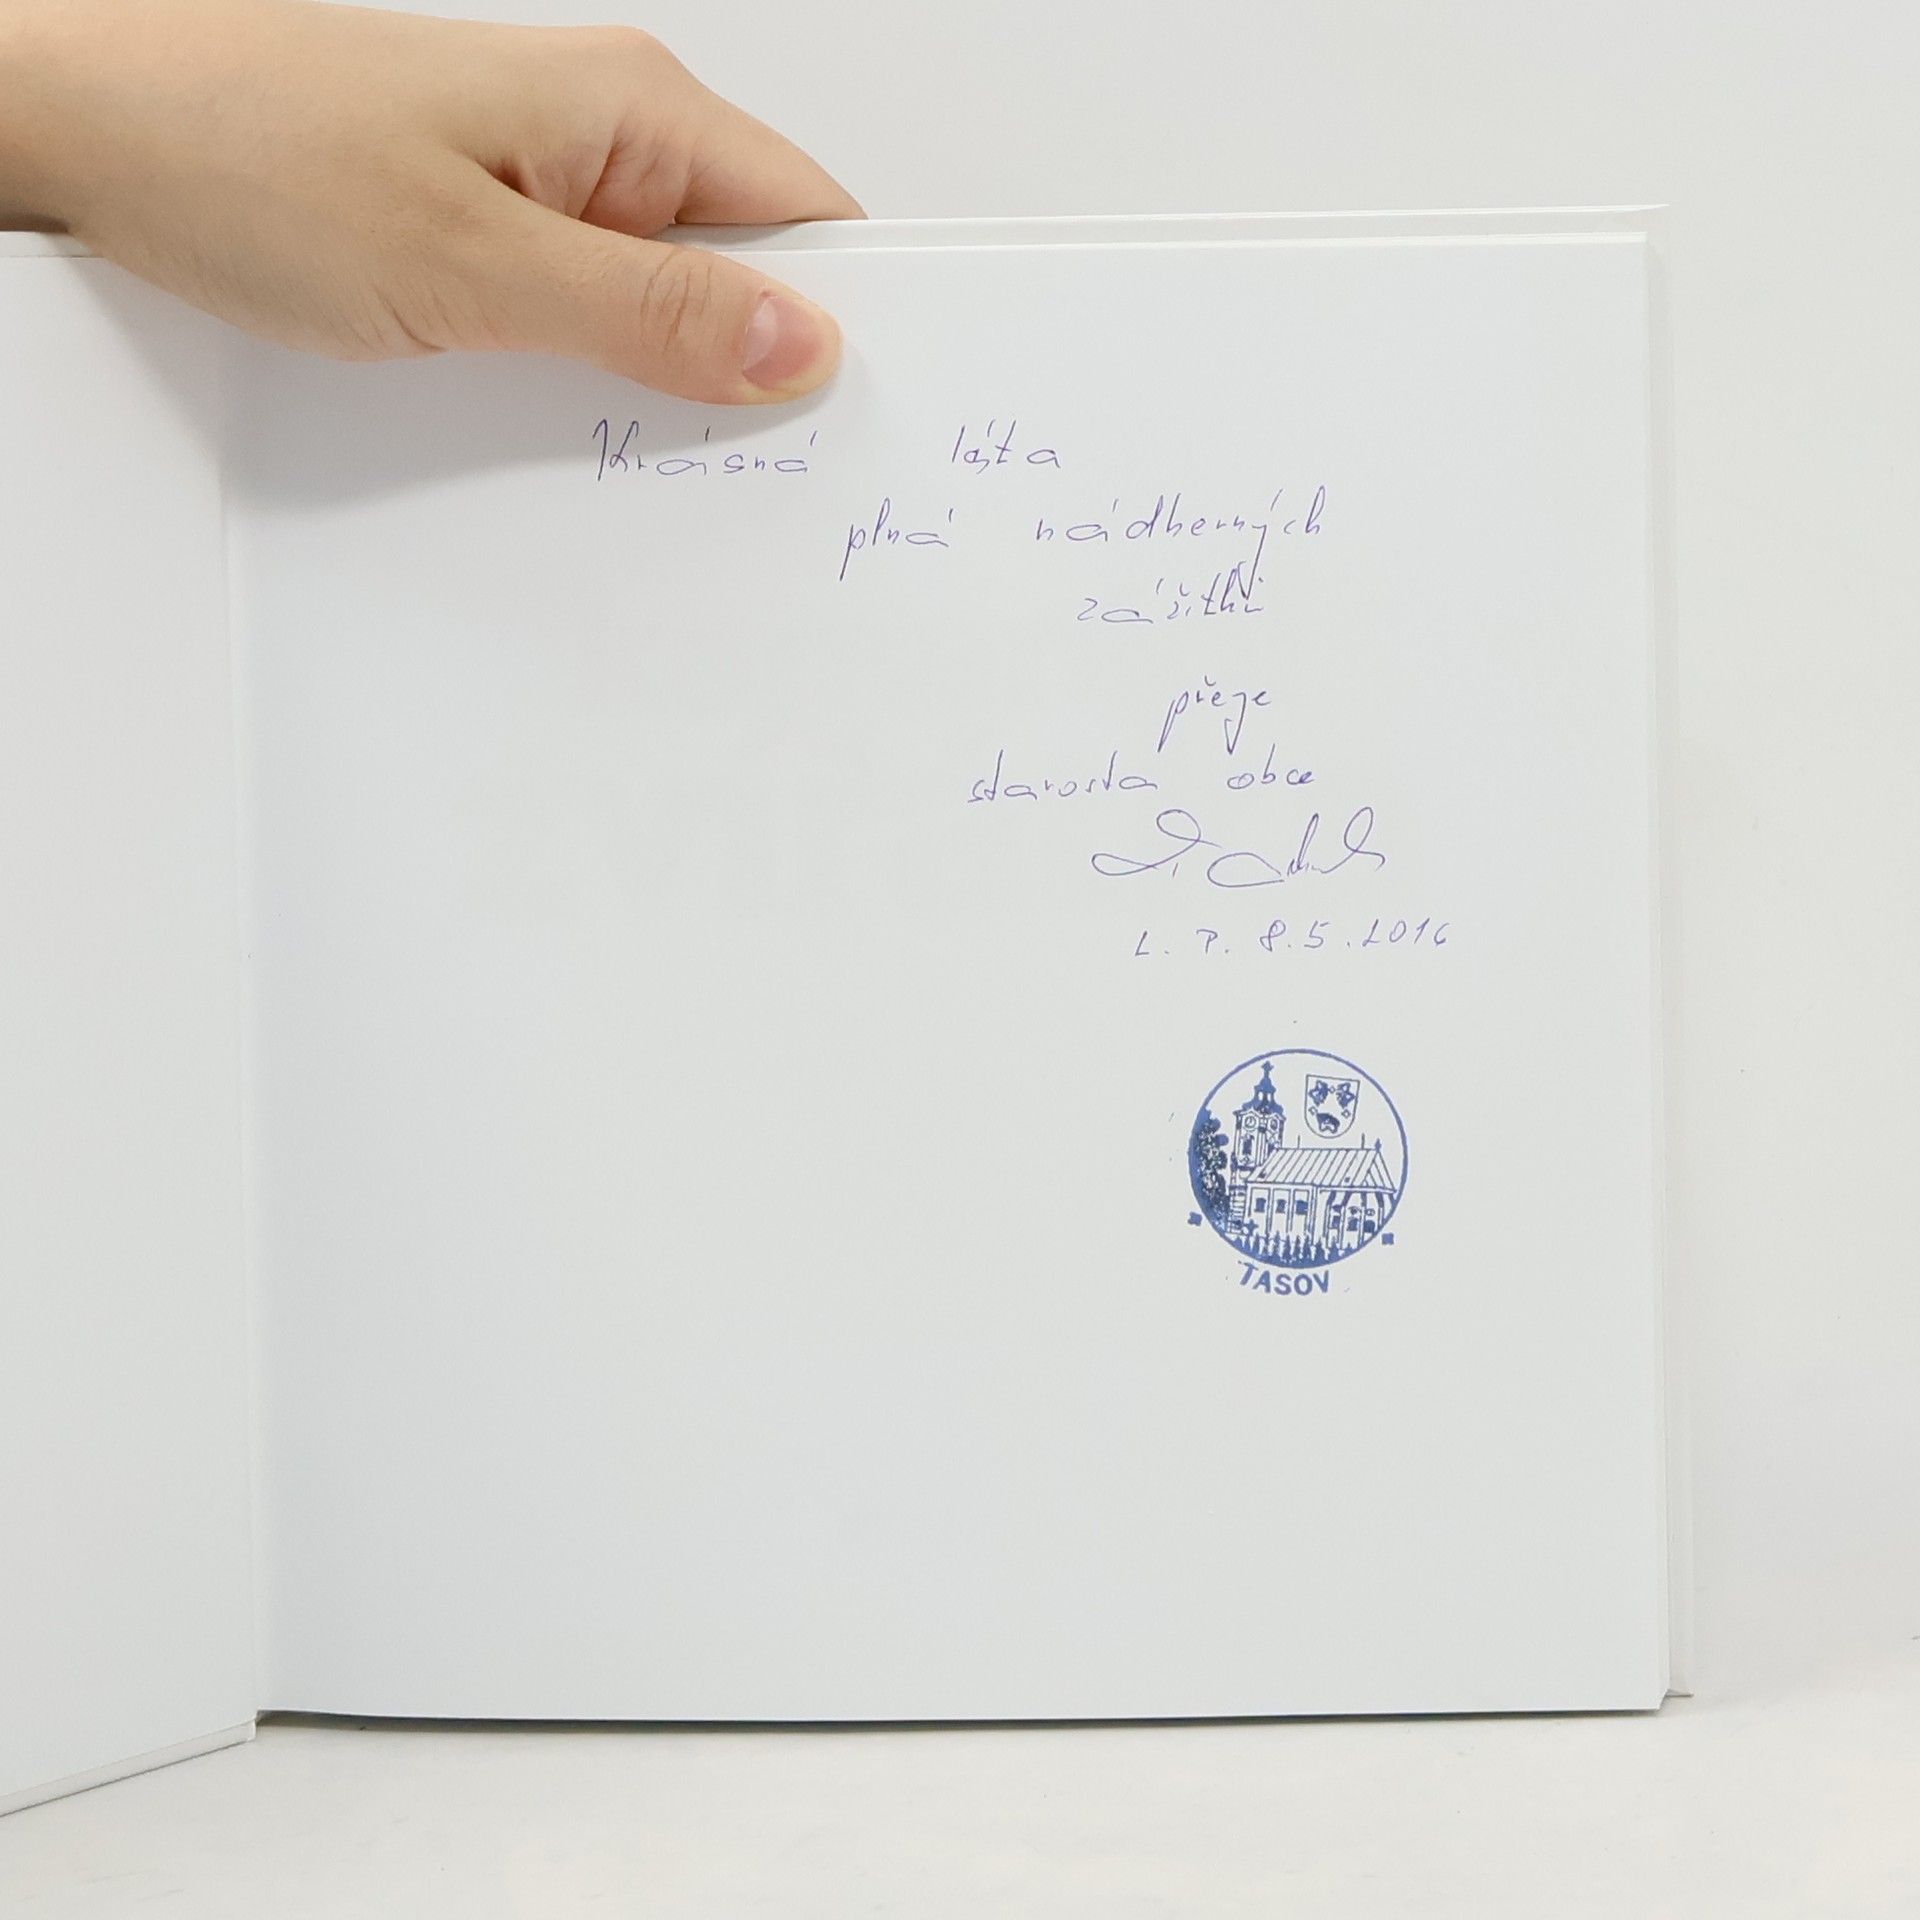 Krásná léta
plná nádherných
zážitků
přeje
starosta obce
L. P. 8.5.2016
TASOV